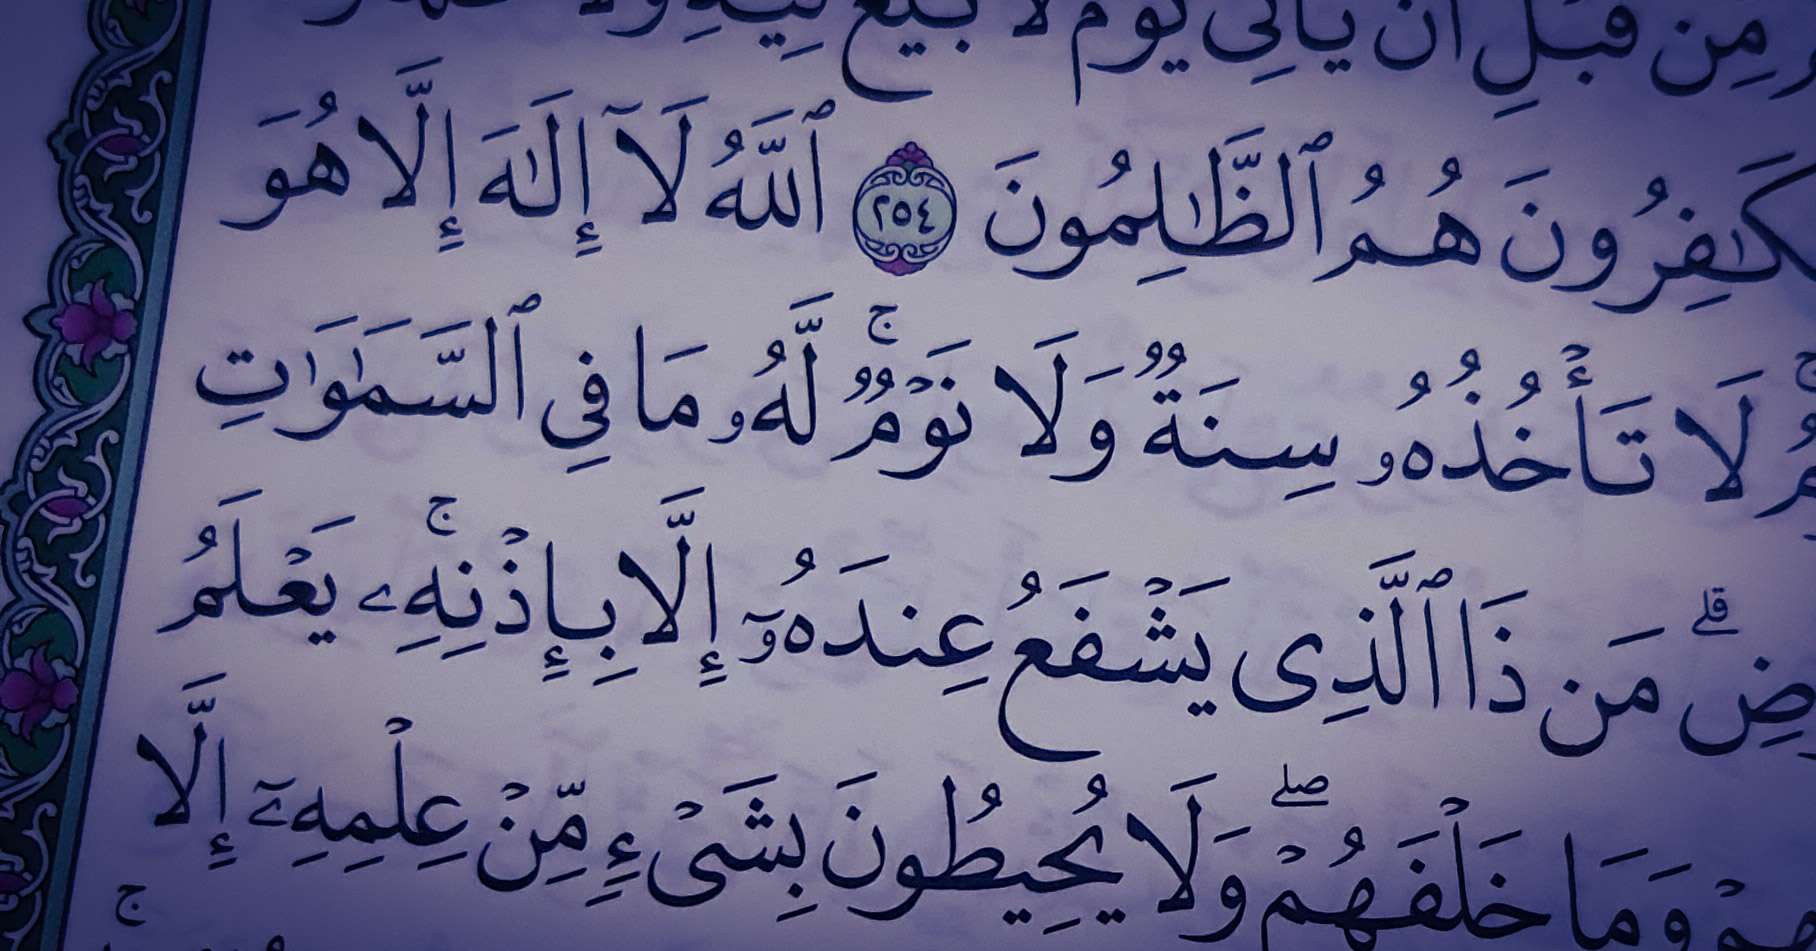 مِن قَبْلِ أَن يَأْتِيَ يَوْمٌ لَا بَيْعٌ فِيهِ وَلَا
هُمُ ٱلظَّـٰلِمُونَ ٢٥٤ ٱللَّهُ لَآ إِلَـٰهَ إِلَّا هُوَ
لَا تَأْخُذُهُۥ سِنَةٌ وَلَا نَوْمٌ ۚ لَّهُۥ مَا فِي ٱلسَّمَـٰوَٰتِ
مَن ذَا ٱلَّذِى يَشْفَعُ عِندَهُۥٓ إِلَّا بِإِذْنِهِۦ ۚ يَعْلَمُ
وَمَا خَلْفَهُمْ ۖ وَلَا يُحِيطُونَ بِشَىْءٍ مِّنْ عِلْمِهِۦٓ إِلَّا